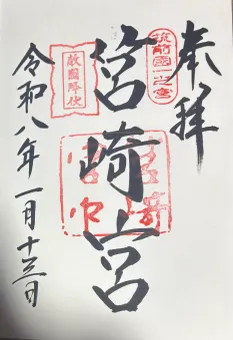 奉拝
筑前國一之宮
筥崎宮
敵國降伏
筥崎宮印
令和八年一月十三日